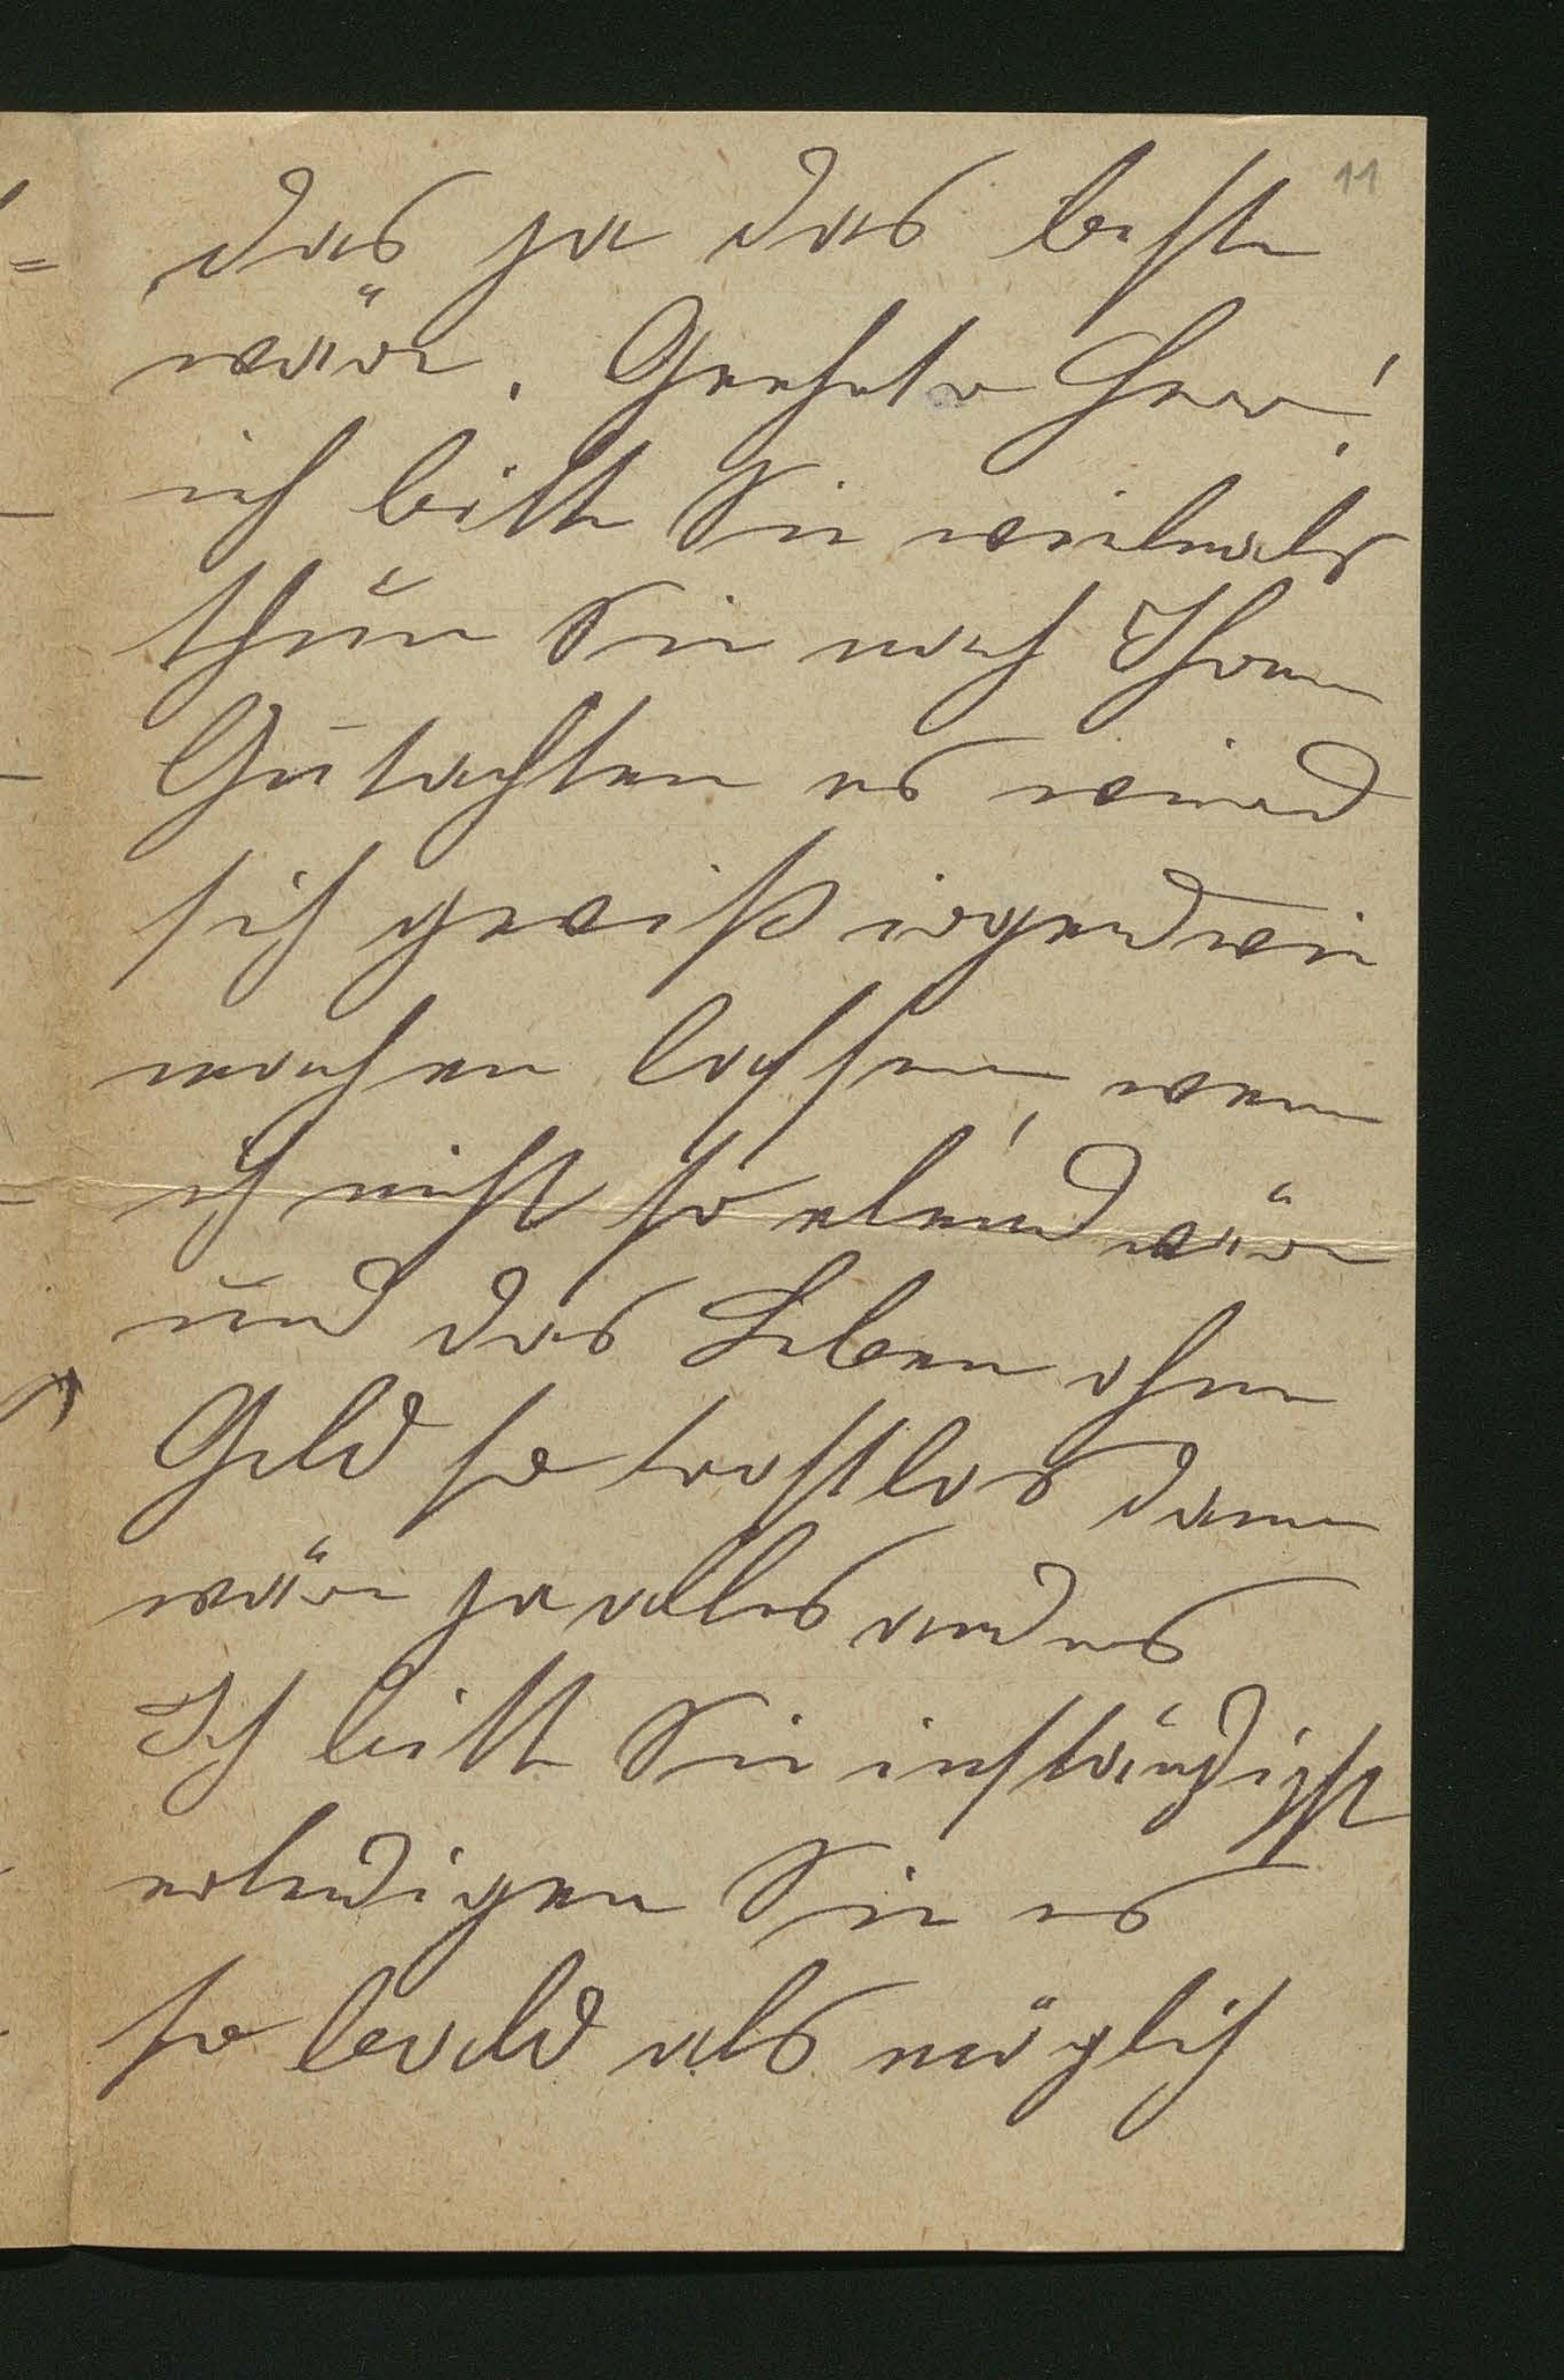 11
das ja das beste
wäre. Geehrter Herr!
ich bitte Sie vielmals
thun Sie nach Ihrem
Gutachten es wird
sich gewiß irgendwie
machen lassen, wenn
ich nicht so elend wäre
und das Leben ohne
Geld so trostlos dann
wäre ja alles andres
Ich bitte Sie inständigst
erledigen Sie es
so bald als möglich